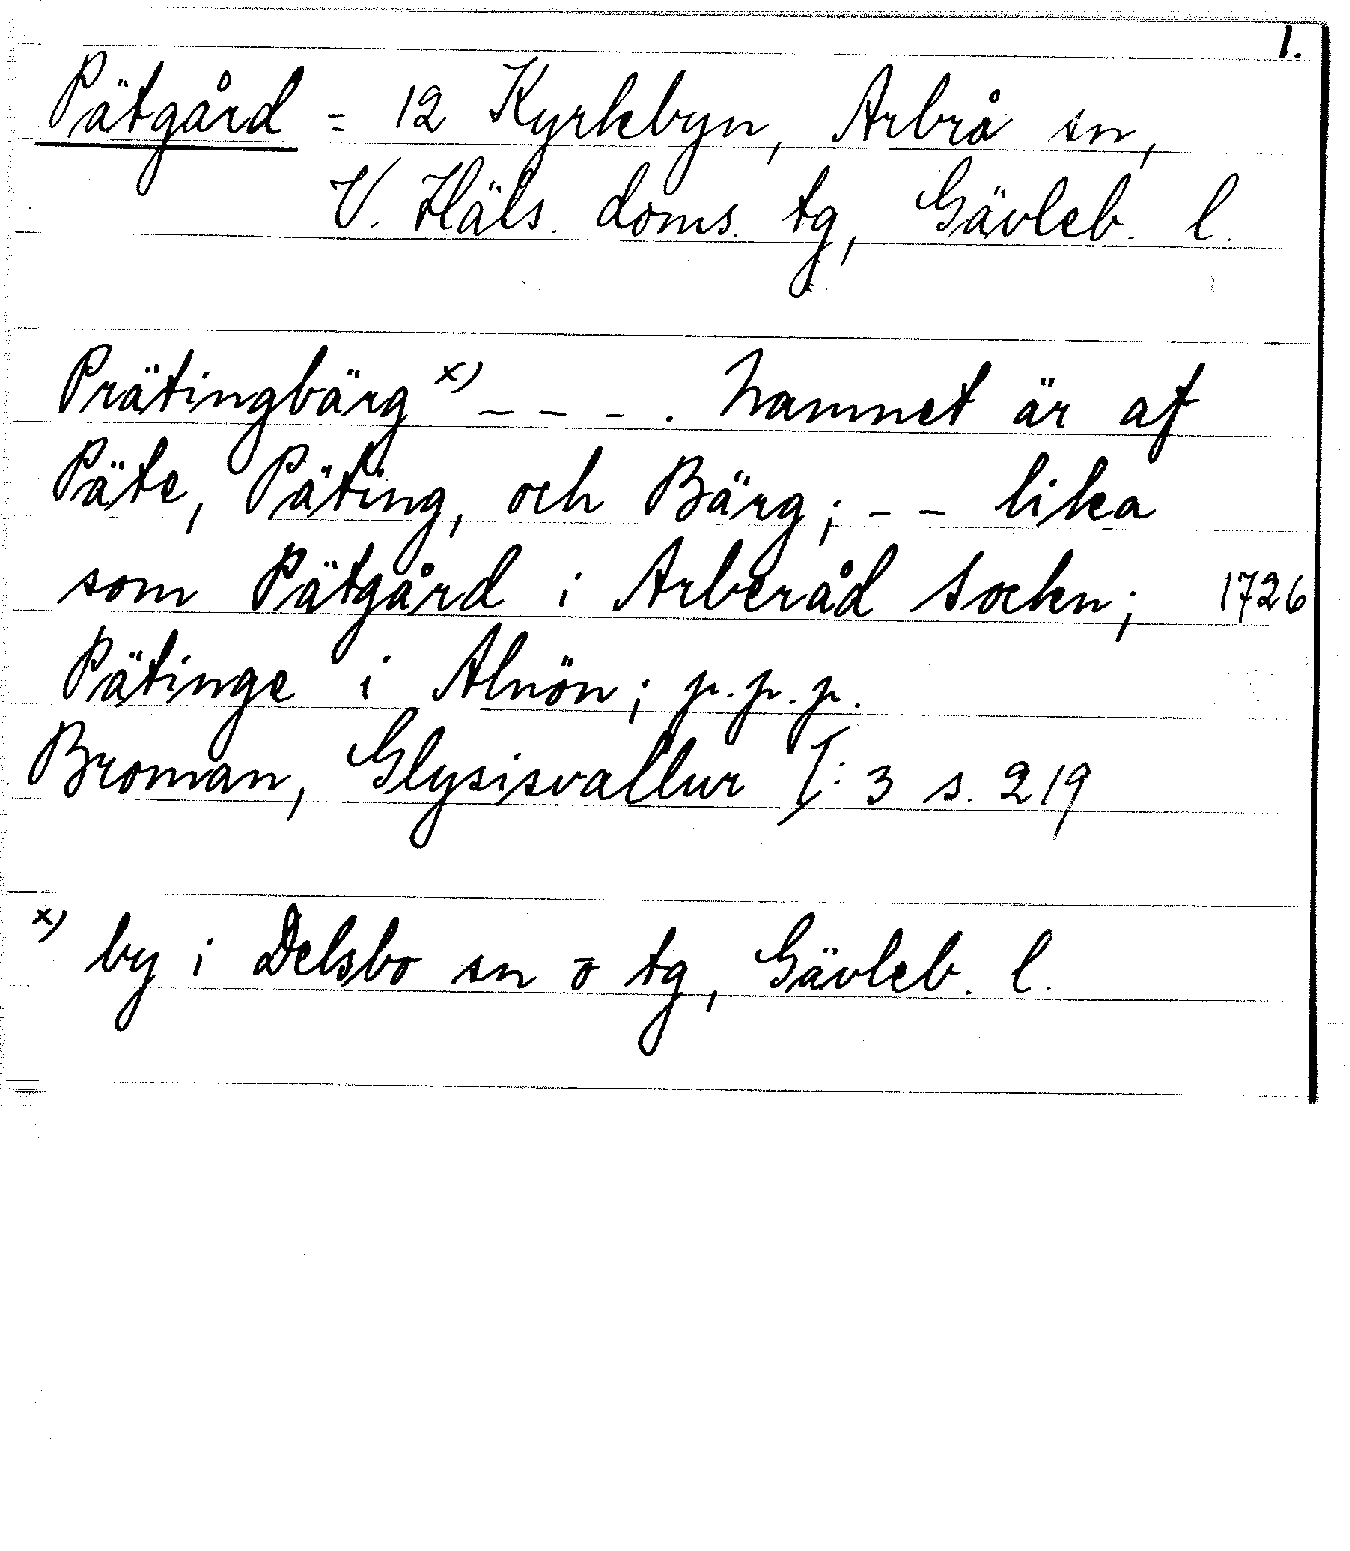 1.
Pätgård = 12 Kyrkbyn, Arbrå sn,
V. Häls. doms. tg, Gävleb. l.
Prätingbärg x) _ _ _ . Namnet är af
Päte, Päting, och Bärg; _ _ lika
som Pätgård i Arberåd Sockn; 1726
Pätinge i Alnön; p.p.p.
Broman, Glysisvallur I: 3 s. 219
x) by i Delsbo sn o tg, Gävleb. l.